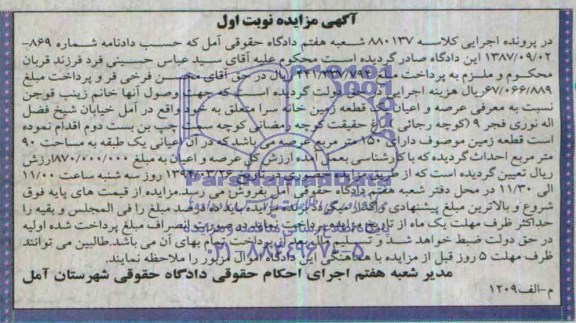 آگهی مزایده نوبت اول
در پرونده اجرایی کلاسه ۸۸۰۱۳۷ شعبه هفتم دادگاه حقوقی آمل که حسب دادنامه شماره ۸۶۹-
۱۳۸۷/۰۹/۰۲ این دادگاه صادر گردیده است محکوم علیه آقای سید عباس حسینی فرد فرزند قربان
محکوم و ملزم به پرداخت مبلغ ریال در حق آقای فرخی فر و پرداخت مبلغ
۶۷/۰۶۶/۸۸۹ ریال هزینه اجرایی دولت گردیده است که جهت وصول آنها خانم زینب قوجن
نسبت به معرفی عرصه و اعیان یک قطعه زمین خانه سرا متعلق به خود واقع در آمل خیابان شیخ فضل
اله نوری فجر ۹ (کوچه رجائی) حقیقت کوچه رمضانی کوچه سمت چپ بن بست دوم اقدام نموده
است قطعه زمین موصوف دارای ۱۵۰ متر مربع عرصه می باشد که در آن اعیانی یک طبقه به مساحت ۹۰
متر مربع احداث گردیده که با کارشناسی بعمل آمده ارزش کل عرصه و اعیان به مبلغ ۸۷۰/۰۰۰/۰۰۰ارزش
ریال تعیین گردیده است که از طریق مزایده حضوری در تاریخ روز سه شنبه ساعت ۱۱/۰۰
الی ۱۱/۳۰ در محل دفتر شعبه هفتم دادگاه حقوقی آمل بفروش می رسد.مزایده از قیمت های پایه فوق
شروع و بالاترین مبلغ پیشنهادی برنده مزایده باید ده درصد مبلغ را فی المجلس و بقیه را
حداکثر ظرف مهلت یک ماه از تاریخ مزایده پرداخت نماید در صورت انصراف مبلغ پرداخت شده اولیه
در حق دولت ضبط خواهد شد و تسلیم مال بعد از پرداخت تمام بهای آن می باشد.طالبین می توانند
ظرف مهلت ۵ روز قبل از مزایده با هماهنگی این دادگاه اموال مزبور را ملاحظه نمایند.
مدیر شعبه هفتم اجرای احکام حقوقی دادگاه حقوقی شهرستان آمل
م-الف۱۲۰۹
ParsNamadData